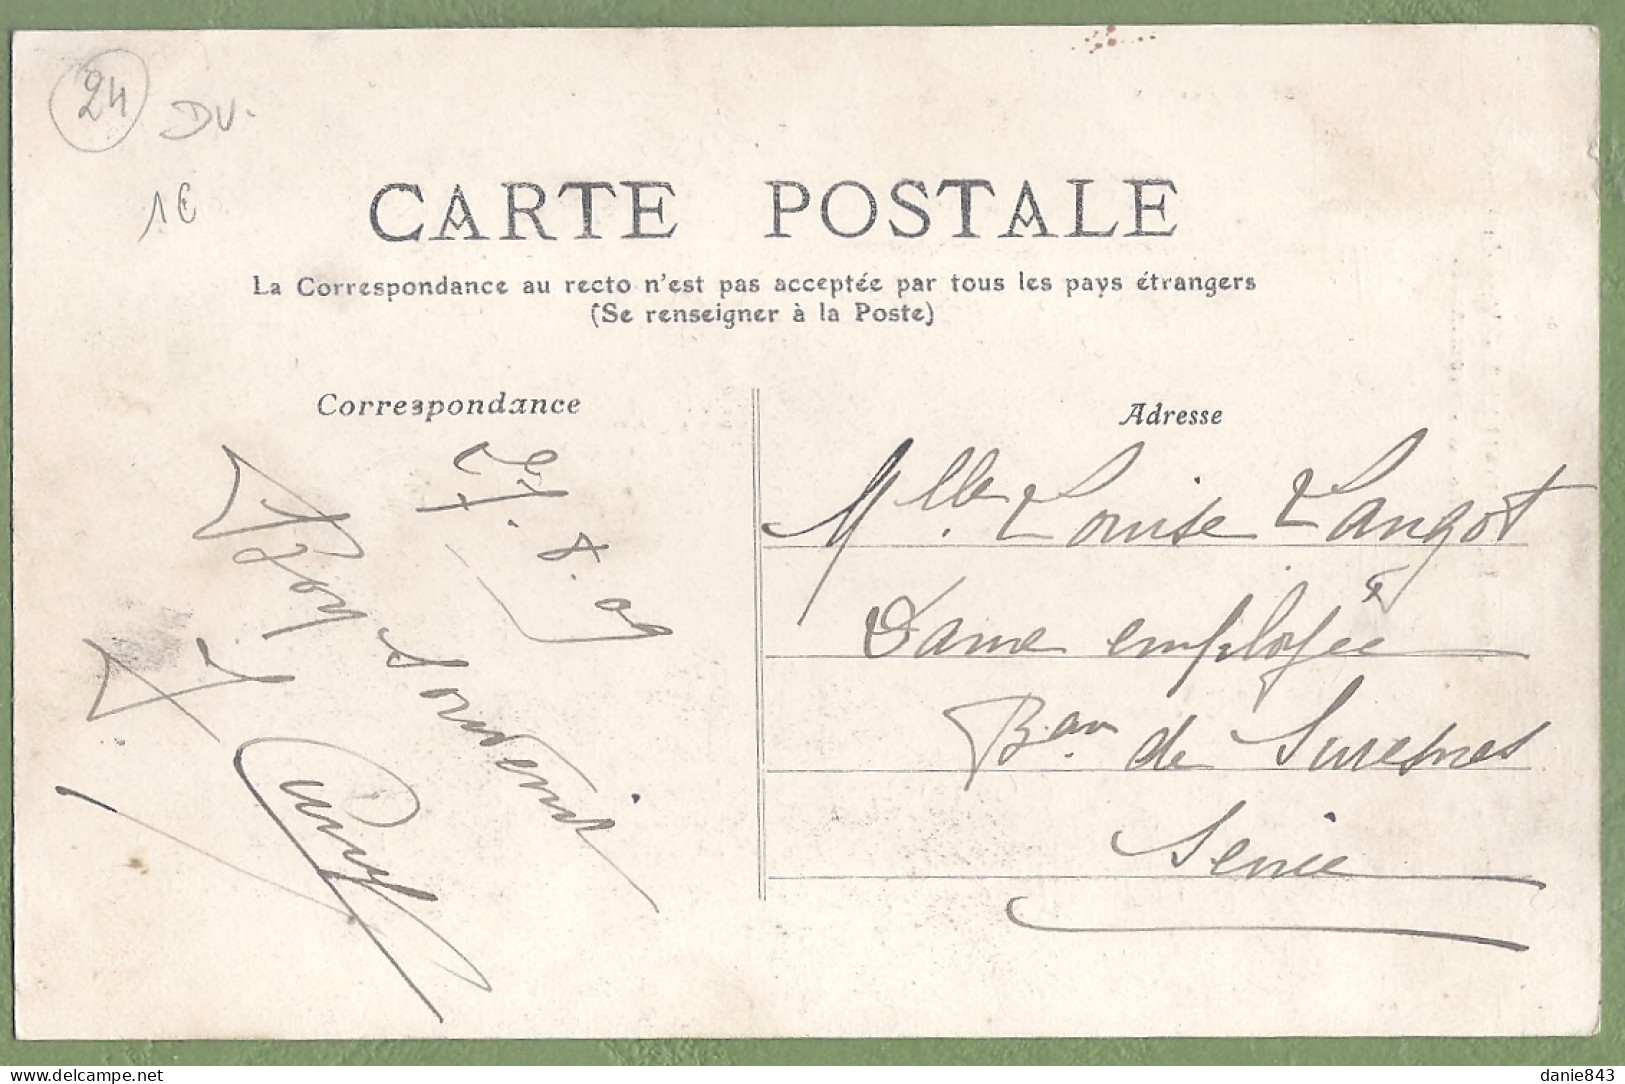 24 DV.
1€
CARTE POSTALE
La Correspondance au recto n'est pas acceptée par tous les pays étrangers
(Se renseigner à la Poste)
Correspondance
Adresse
8.09
Bon Souvenir
Mlle. Louise Langot
Dame employée
Bau de Suresnes
Seine
delcampe.net
danie843